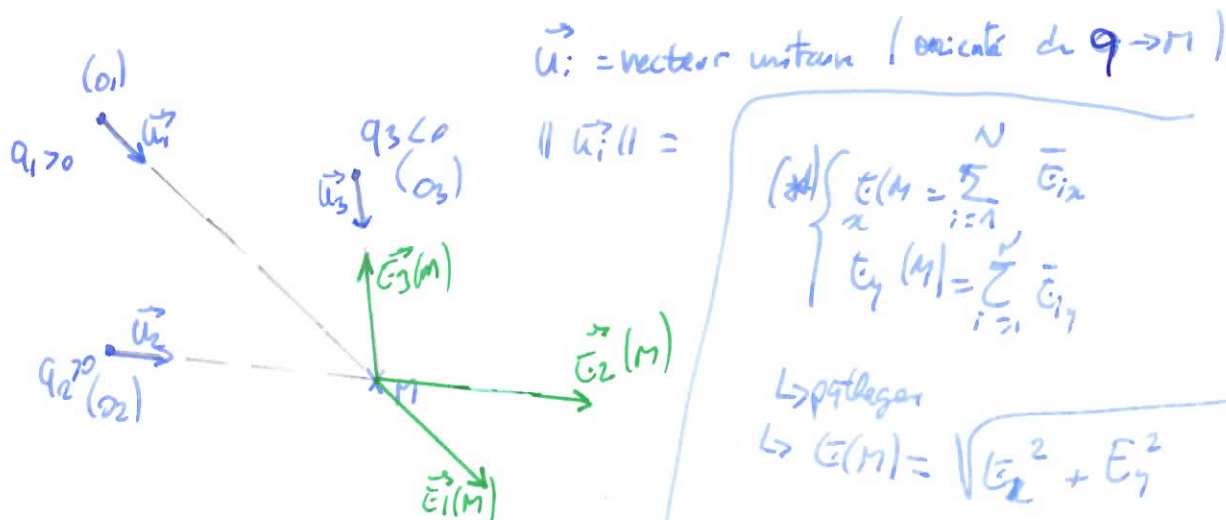 u⃗i = vecteur unitaire (orienté de q → M)
‖ u⃗i ‖ =
(o1)
q1>0
u⃗1
q3<0
(o3)
u⃗3
E⃗3(M)
u⃗2
q2>0
(o2)
M
E⃗2(M)
E⃗1(M)
{ Ex(M = Σ i=1 N Eix
Ey(M) = Σ i=1 N Eiy
↳ pythagor
↳ E(M) = √Ex² + Ey²